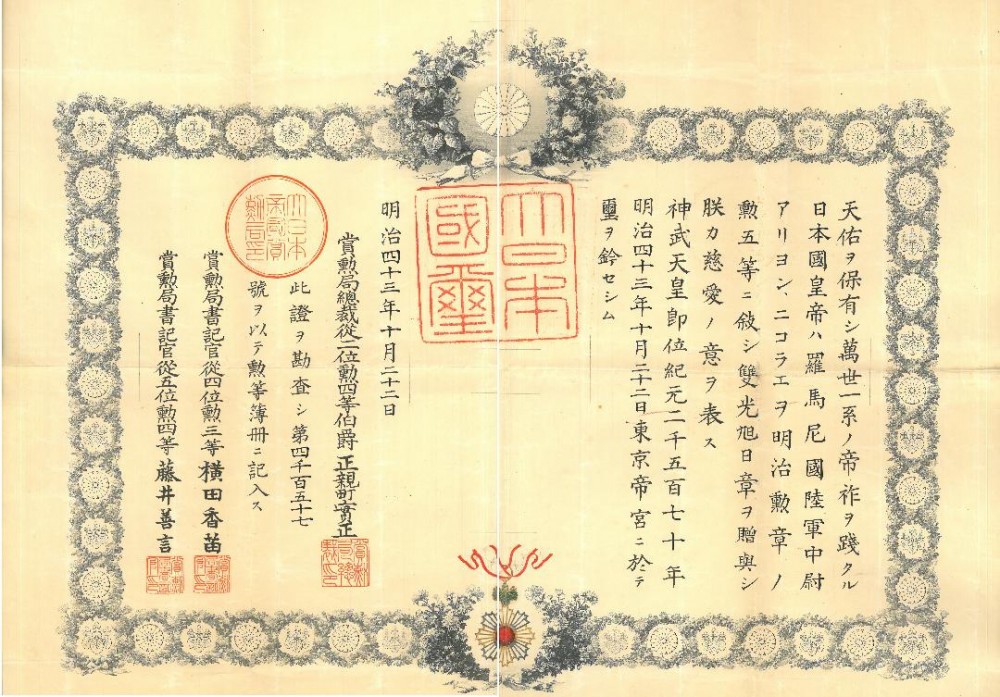 天佑ヲ保有シ萬世一系ノ帝祚ヲ踐タル
日本國皇帝ハ羅馬尼國陸軍中尉
アリヨン、ニコラエヲ明治勲章ノ
勲五等ニ敍シ雙光旭日章ヲ贈與シ
朕カ慈愛ノ意ヲ表ス
神武天皇即位紀元二千五百七十年
明治四十三年十月二十二日東京帝宮ニ於テ
璽ヲ鈐セシム
大日本
國璽
明治四十三年十月二十二日
賞勲局總裁從二位勲四等伯爵正親町實正
此證ヲ勘査シ第四千百五十七
號ヲ以テ勲等簿册ニ記入ス
賞勲局書記官從四位勲三等横田香苗
賞勲局書記官從五位勲四等藤井善言